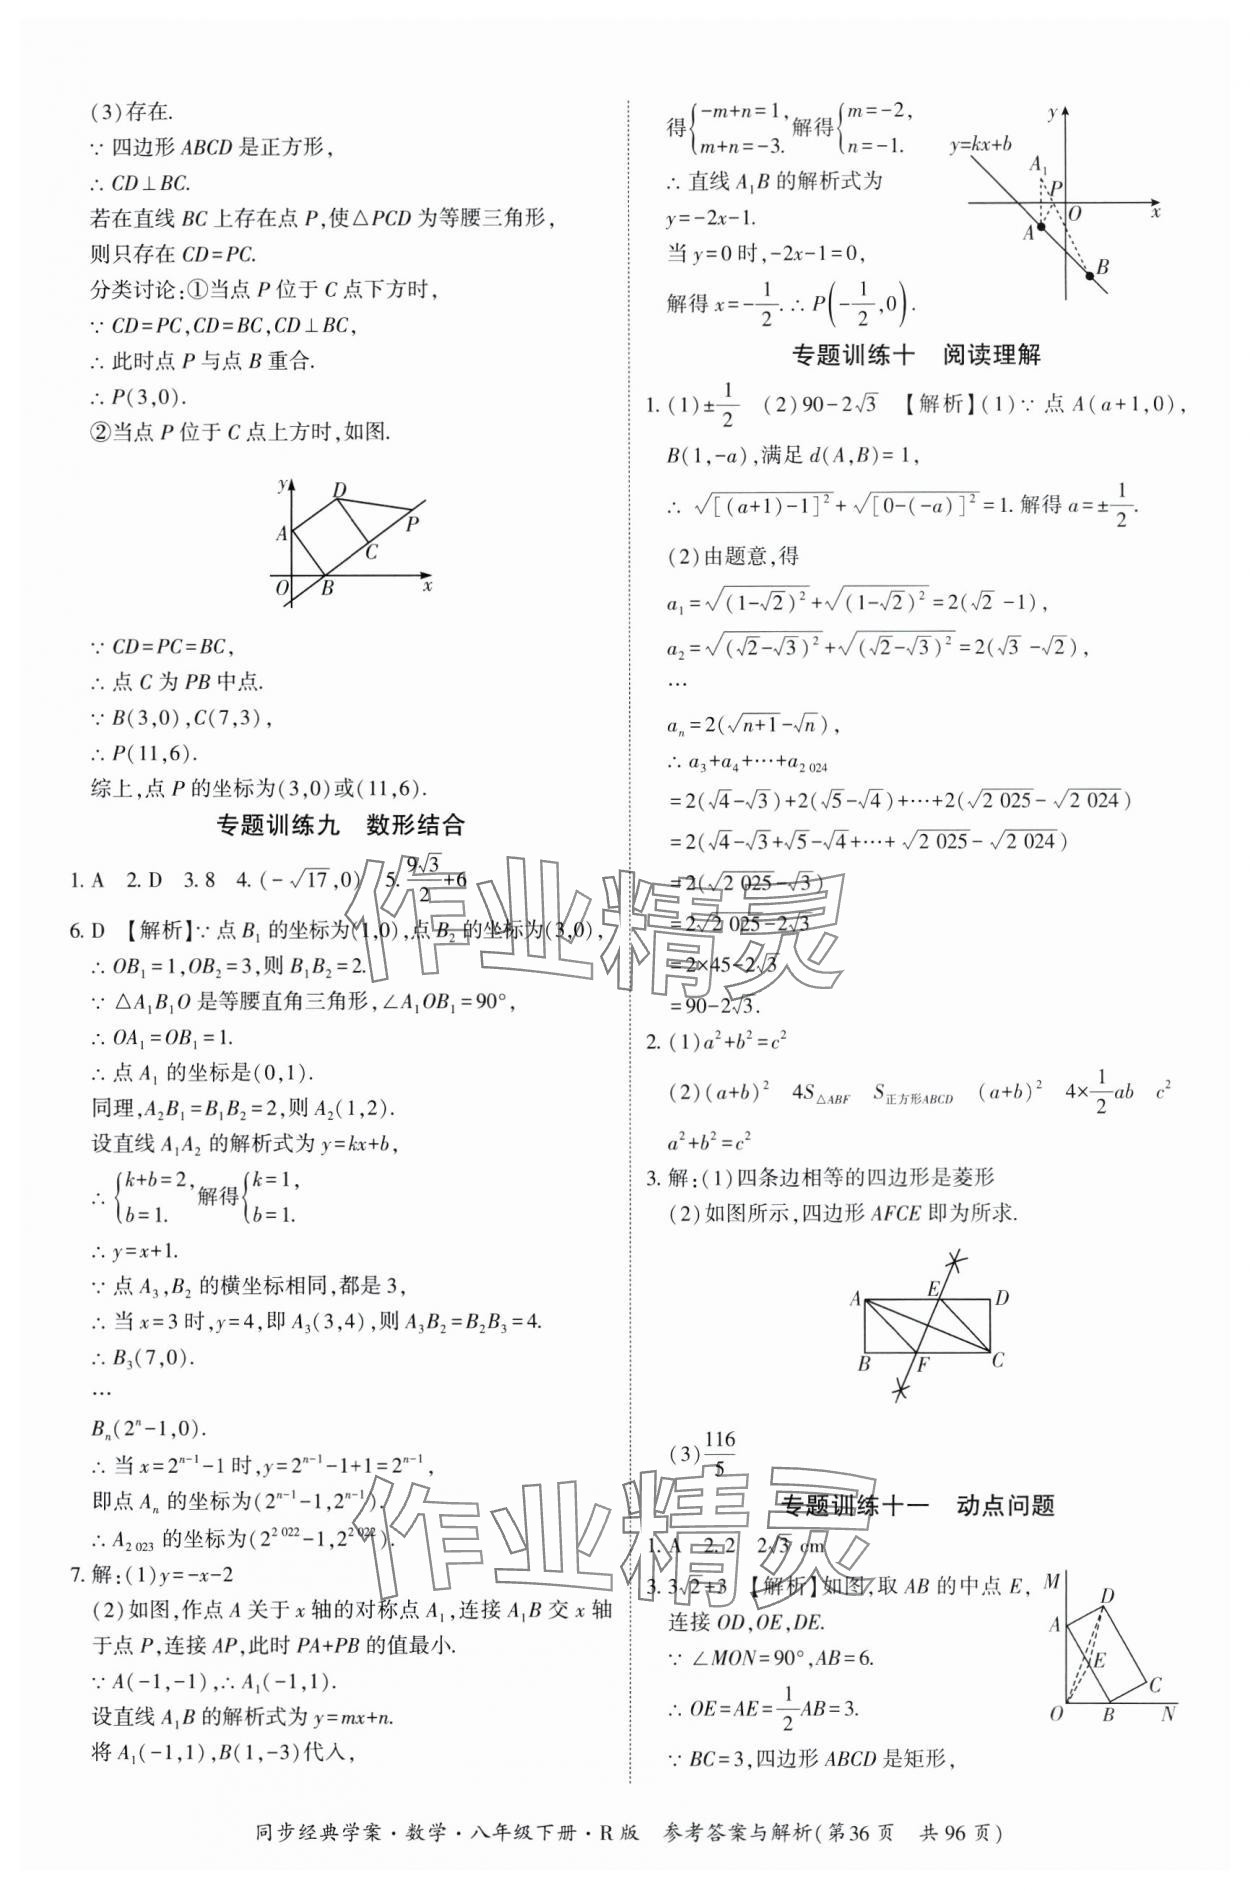 (3)存在.
∵ 四边形 ABCD 是正方形,
∴ CD⊥BC.
若在直线 BC 上存在点 P,使△PCD 为等腰三角形,
则只存在 CD=PC.
分类讨论:①当点 P 位于 C 点下方时,
∵ CD=PC,CD=BC,CD⊥BC,
∴ 此时点 P 与点 B 重合.
∴ P(3,0).
②当点 P 位于 C 点上方时,如图.
y
D
A
P
C
O
B
x
∵ CD=PC=BC,
∴ 点 C 为 PB 中点.
∵ B(3,0),C(7,3),
∴ P(11,6).
综上,点 P 的坐标为(3,0)或(11,6).
专题训练九　数形结合
1. A　2. D　3. 8　4. (-√17,0)　5. 9√3/2+6
6. D　【解析】∵ 点 B₁ 的坐标为(1,0),点 B₂ 的坐标为(3,0),
∴ OB₁=1,OB₂=3,则 B₁B₂=2.
∵ △A₁B₁O 是等腰直角三角形,∠A₁OB₁=90°,
∴ OA₁=OB₁=1.
∴ 点 A₁ 的坐标是(0,1).
同理,A₂B₁=B₁B₂=2,则 A₂(1,2).
设直线 A₁A₂ 的解析式为 y=kx+b,
∴ {k+b=2, b=1. 解得{k=1, b=1.
∴ y=x+1.
∵ 点 A₃,B₂ 的横坐标相同,都是 3,
∴ 当 x=3 时,y=4,即 A₃(3,4),则 A₃B₂=B₂B₃=4.
∴ B₃(7,0).
…
Bₙ(2ⁿ-1,0).
∴ 当 x=2ⁿ⁻¹-1 时,y=2ⁿ⁻¹-1+1=2ⁿ⁻¹,
即点 Aₙ 的坐标为(2ⁿ⁻¹-1,2ⁿ⁻¹).
∴ A₂ ₀₂₃ 的坐标为(2² ⁰²²-1,2² ⁰²²).
7. 解:(1)y=-x-2
(2)如图,作点 A 关于 x 轴的对称点 A₁,连接 A₁B 交 x 轴
于点 P,连接 AP,此时 PA+PB 的值最小.
∵ A(-1,-1),∴ A₁(-1,1).
设直线 A₁B 的解析式为 y=mx+n.
将 A₁(-1,1),B(1,-3)代入,
得{-m+n=1, m+n=-3. 解得{m=-2, n=-1.
∴ 直线 A₁B 的解析式为
y=-2x-1.
当 y=0 时,-2x-1=0,
解得 x=-1/2. ∴ P(-1/2,0).
y
y=kx+b
A₁
P
O
x
A
B
专题训练十　阅读理解
1. (1)±1/2　(2)90-2√3　【解析】(1)∵ 点 A(a+1,0),
B(1,-a),满足 d(A,B)=1,
∴ √[(a+1)-1]²+√[0-(-a)]²=1. 解得 a=±1/2.
(2)由题意,得
a₁=√(1-√2)²+√(1-√2)²=2(√2-1),
a₂=√(√2-√3)²+√(√2-√3)²=2(√3-√2),
…
aₙ=2(√n+1-√n),
∴ a₃+a₄+…+a₂ ₀₂₄
=2(√4-√3)+2(√5-√4)+…+2(√2 025-√2 024)
=2(√4-√3+√5-√4+…+√2 025-√2 024)
=2(√2 025-√3)
=2√2 025-2√3
=2×45-2√3
=90-2√3.
2. (1)a²+b²=c²
(2)(a+b)²　4S△ABF　S正方形ABCD　(a+b)²　4×1/2ab　c²
a²+b²=c²
3. 解:(1)四条边相等的四边形是菱形
(2)如图所示,四边形 AFCE 即为所求.
A
E
D
B
F
C
(3)116/5
专题训练十一　动点问题
1. A　2. 2　2√3 cm
3. 3√2+3　【解析】如图,取 AB 的中点 E,
连接 OD,OE,DE.
∵ ∠MON=90°,AB=6.
∴ OE=AE=1/2AB=3.
∵ BC=3,四边形 ABCD 是矩形,
M
D
A
E
C
O
B
N
同步经典学案·数学·八年级下册·R 版　参考答案与解析(第36页　共96页)
作业精灵
作业精灵